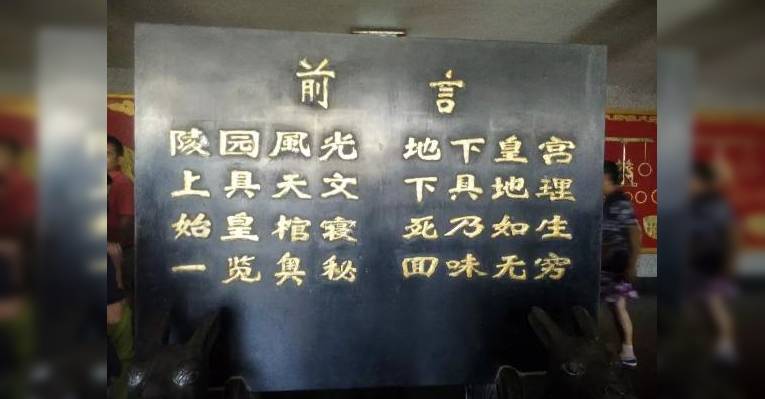 前言
陵园風光 地下皇宫
上具天文 下具地理
始皇棺寝 死乃如生
一览奥秘 回味无穷